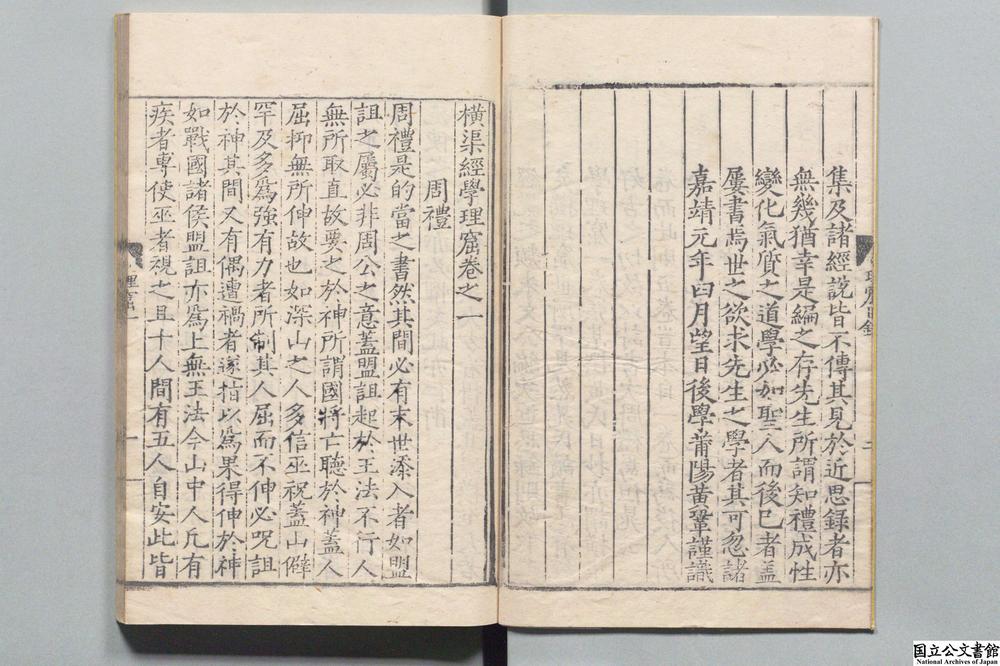 集及諸經說皆不傳其見於近思録者亦
無幾猶幸是編之存先生所謂知禮成性
變化氣質之道學必如聖人而後已者盖
屢書焉世之欲求先生之學者其可忽諸
嘉靖元年曰月望日後學莆陽黄鞏謹識
橫渠經學理窟卷之一
周禮
周禮是的當之書然其間必有末世添入者如盟
詛之屬必非周公之意蓋盟詛起於王法不行人
無所取直故要之於神所謂國將亡聽於神蓋人
屈抑無所伸故也如深山之人多信巫祝蓋山僻
罕及多為強有力者所制其人屈而不伸必呪詛
於神其間又有偶遭禍者遂指以為果得伸於神
如戰國諸侯盟詛亦為上無王法今山中人凡有
疾者專使巫者視之且十人間有五人自安此皆
理窟一
一
国立公文書館
National Archives of Japan